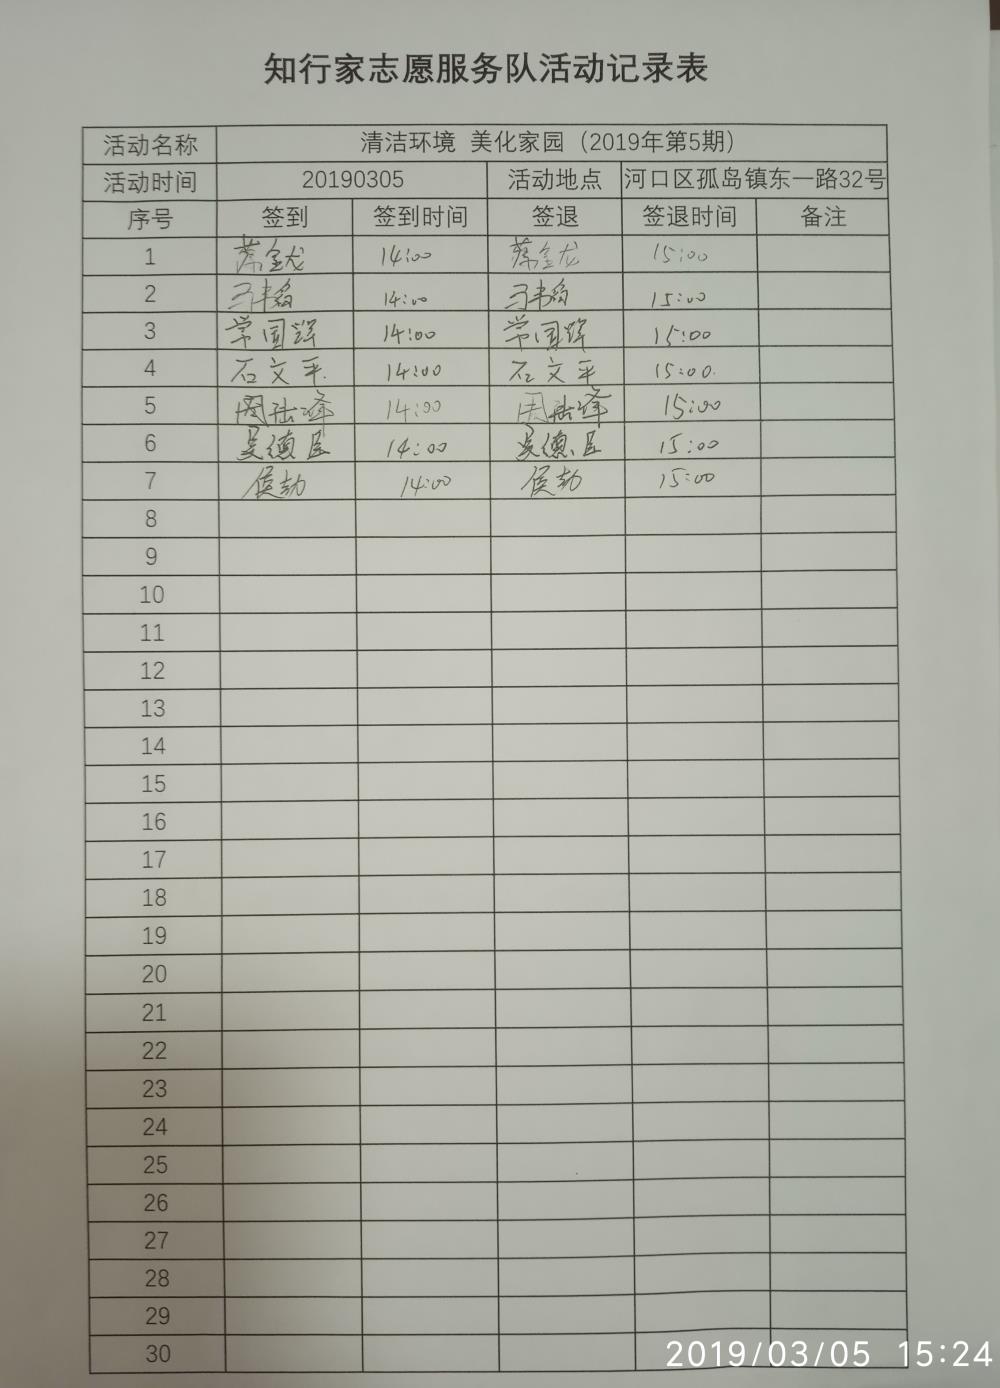 知行家志愿服务队活动记录表
活动名称 清洁环境 美化家园（2019年第5期）
活动时间 20190305 活动地点 河口区孤岛镇东一路32号
序号 签到 签到时间 签退 签退时间 备注
1 14:00 15:00
2 14:00 15:00
3 常国辉 14:00 常国辉 15:00
4 石文平 14:00 石文平 15:00
5 14:00 15:00
6 14:00 15:00
7 14:00 15:00
8
9
10
11
12
13
14
15
16
17
18
19
20
21
22
23
24
25
26
27
28
29
30
2019/03/05 15:24